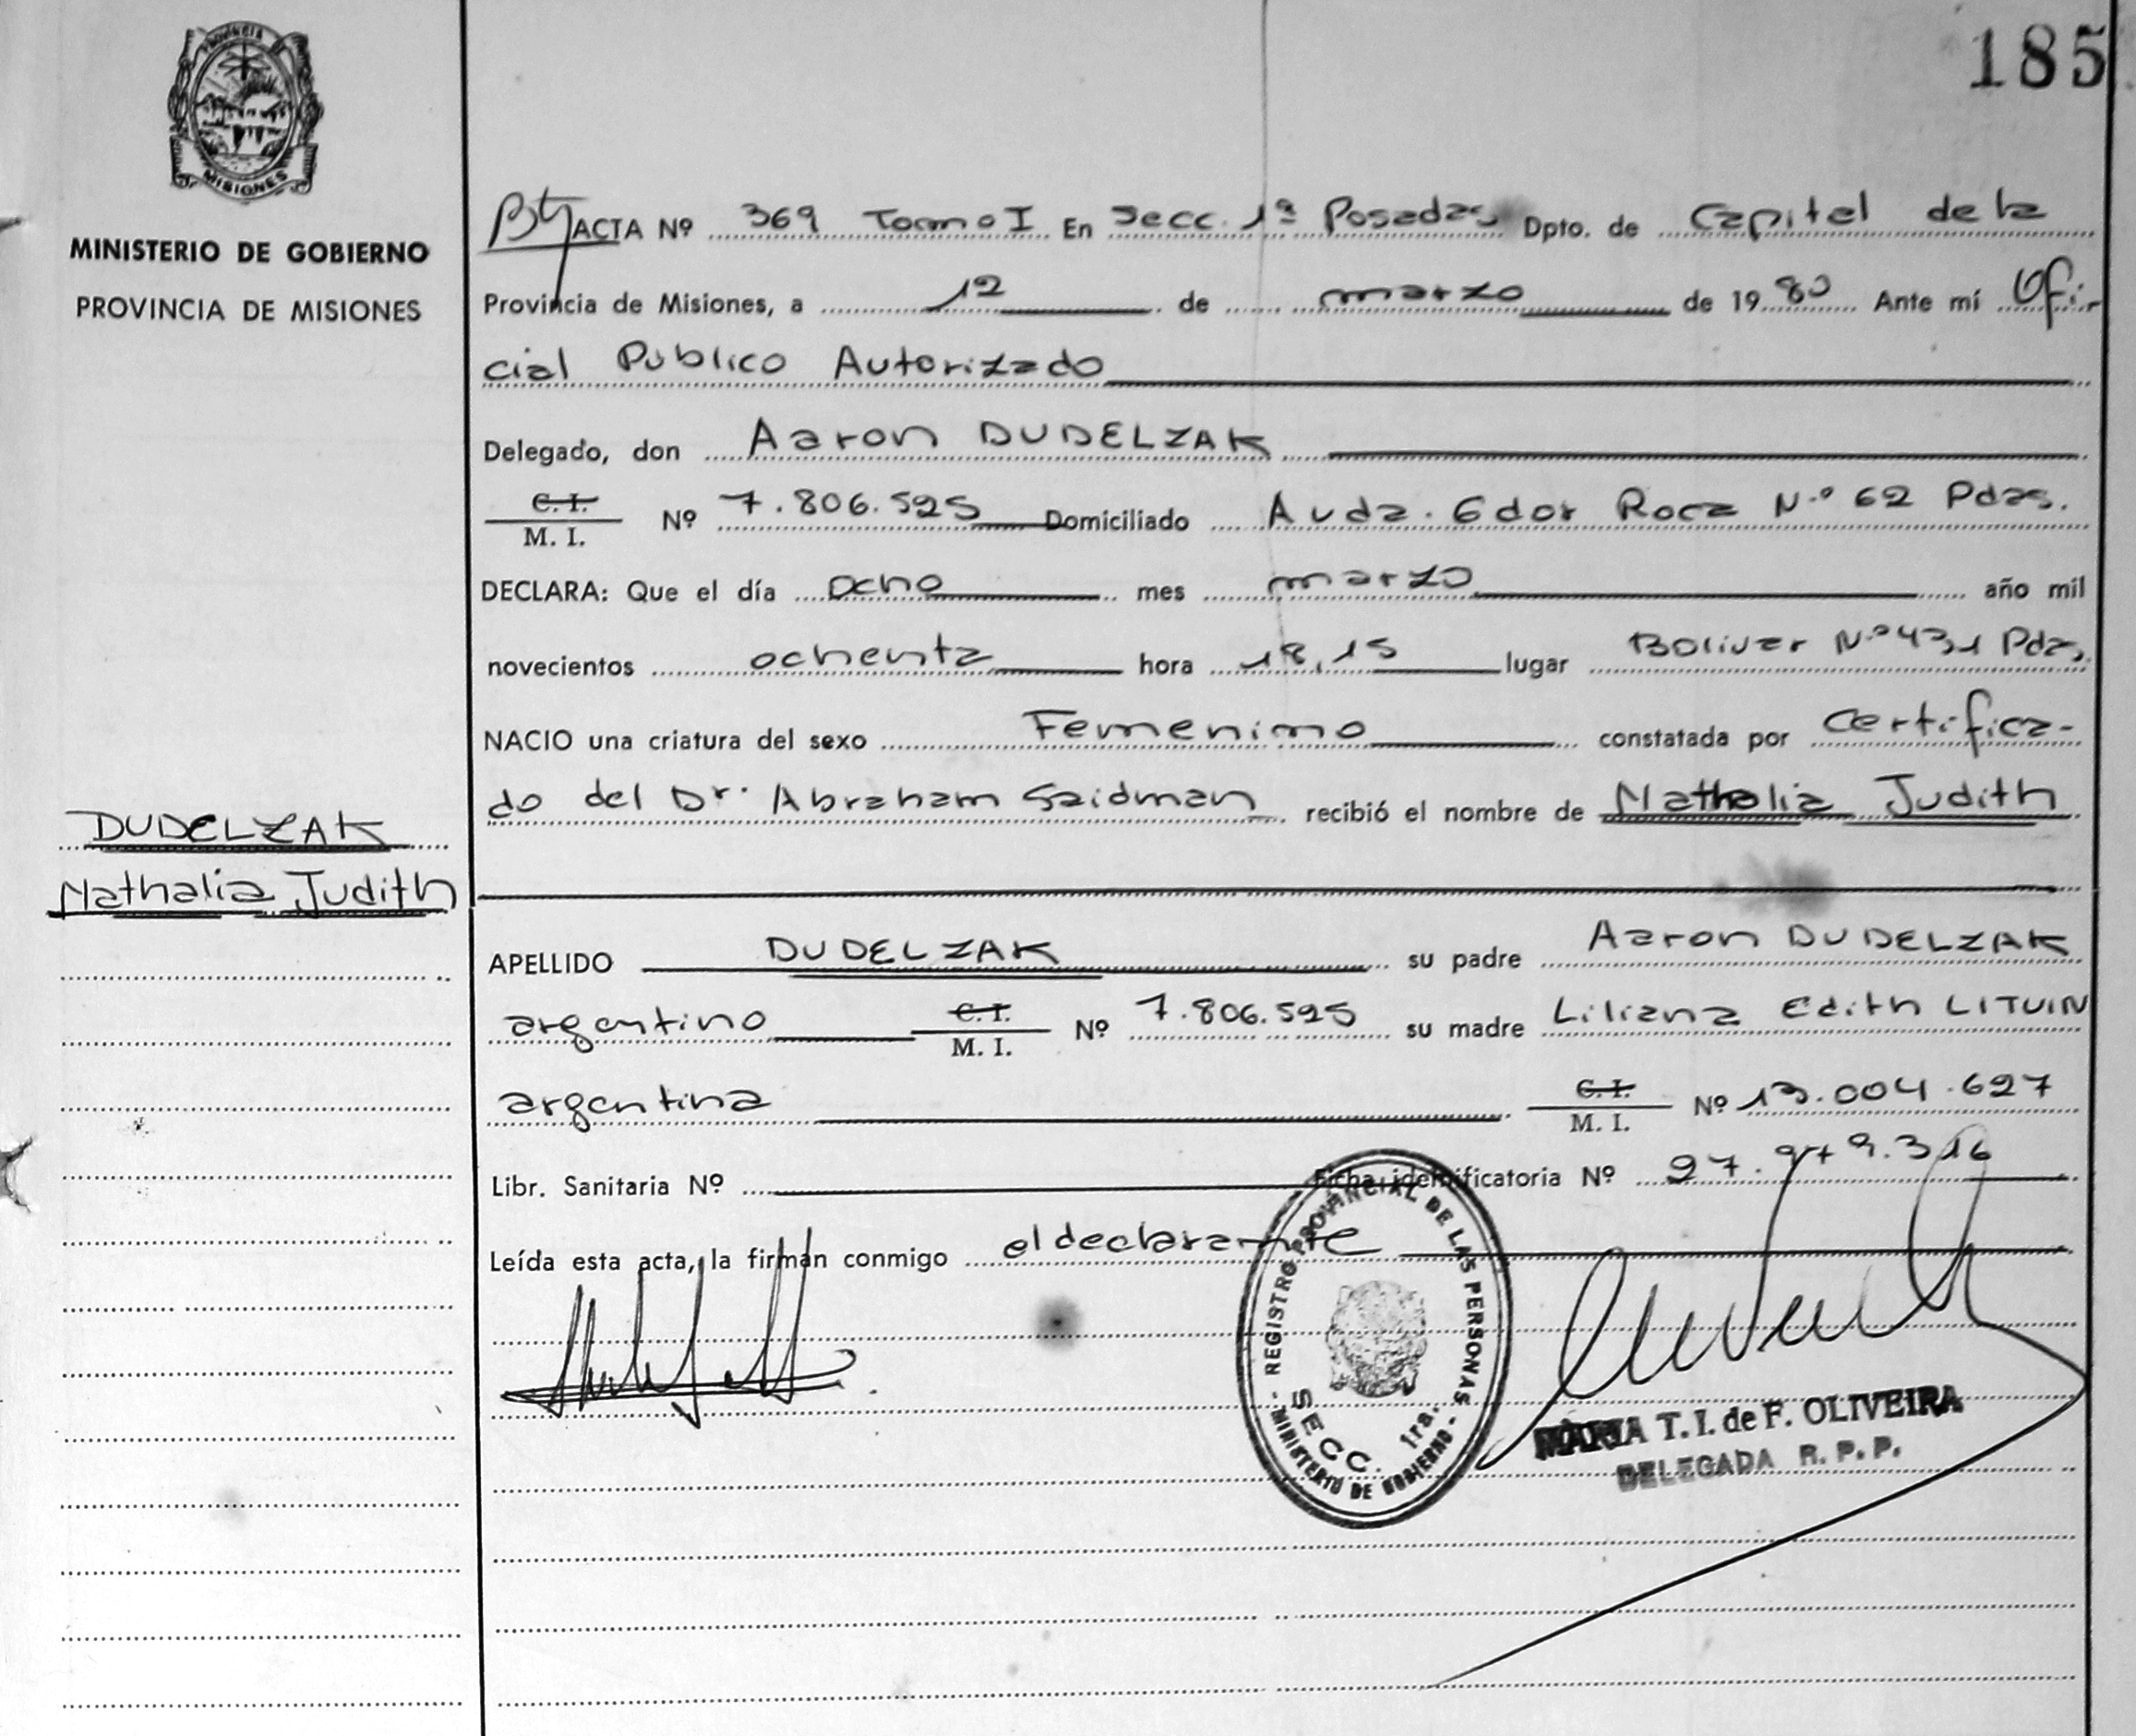 185
PROVINCIA DE
MISIONES
MINISTERIO DE GOBIERNO
PROVINCIA DE MISIONES
DUDELZAK
Nathalia Judith
ACTA Nº 369 Tomo I En Secc. 1ª Posadas Dpto. de Capital de la
Provincia de Misiones, a 12 de marzo de 1980 Ante mí Ofi-
cial Público Autorizado
Delegado, don Aaron DUDELZAK
C. I.
M. I. Nº 7.806.525 Domiciliado Avda. Gdor Roca N.º 62 Pdas.
DECLARA: Que el día ocho mes marzo año mil
novecientos ochenta hora 18,15 lugar Bolivar N.º 431 Pdas.
NACIO una criatura del sexo Femenino constatada por Certifica-
do del Dr. Abraham Saidman recibió el nombre de Nathalia Judith
APELLIDO DUDELZAK su padre Aaron DUDELZAK
argentino C. I. M. I. Nº 7.806.525 su madre Liliana Edith LITVIN
argentina C. I. M. I. Nº 13.004.627
Libr. Sanitaria Nº Ficha identificatoria Nº 27.949.316
Leída esta acta, la firman conmigo el declarante
REGISTRO PROVINCIAL DE LAS PERSONAS
SECC. 1ra.
MINISTERIO DE GOBIERNO
MARIA T. I. de F. OLIVEIRA
DELEGADA R. P. P.